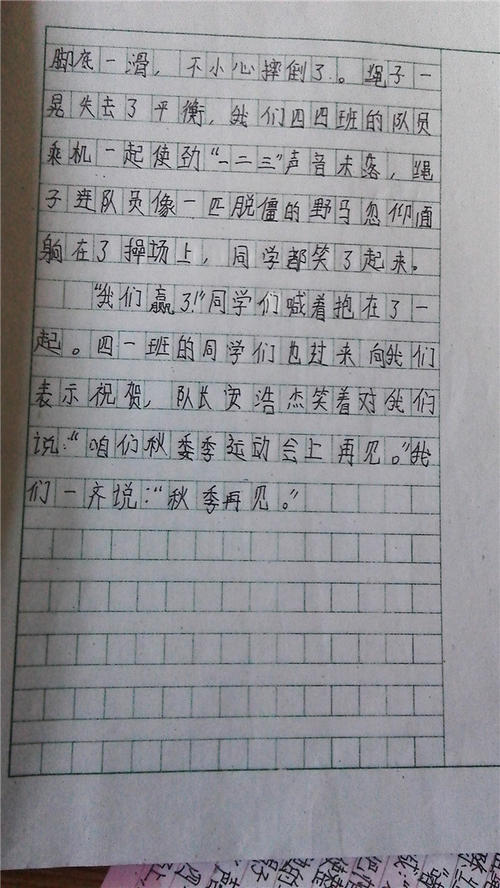 脚底一滑，不小心摔倒了。绳子一
晃失去了平衡，我们四四班的队员
乘机一起使劲“一二三”声音未落，绳
子连队员像一匹脱僵的野马忽仰面
躺在了操场上，同学都笑了起来。
“我们赢了！”同学们喊着抱在了一
起。四一班的同学们也过来向我们
表示祝贺，队长安浩杰笑着对我们
说：“咱们秋委季运动会上再见。”我
们一齐说：“秋季再见。”